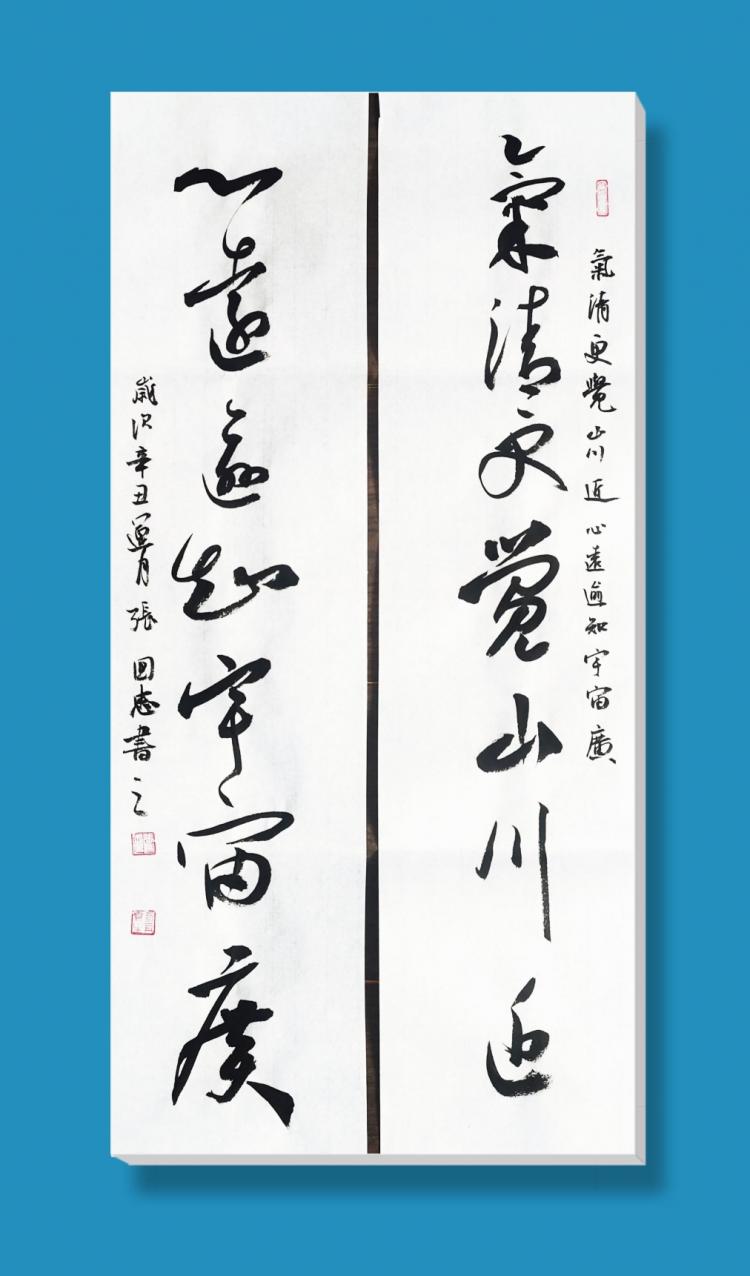 氣清更覺山川近心遠逾知宇宙廣
氣清更覺山川近
心遠逾知宇宙廣
歲次辛丑月張回書之